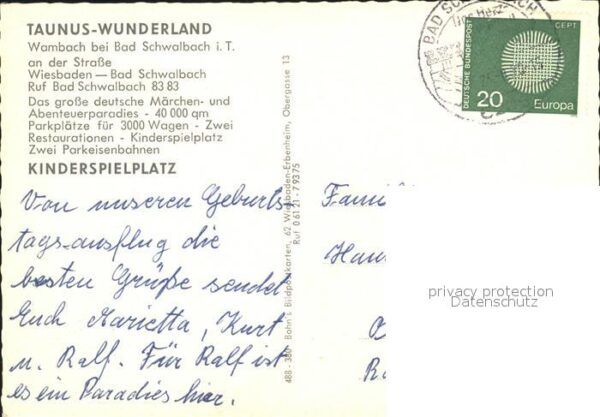 TAUNUS-WUNDERLAND
Wambach bei Bad Schwalbach i. T.
an der Straße
Wiesbaden — Bad Schwalbach
Ruf Bad Schwalbach 83 83
Das große deutsche Märchen- und
Abenteuerparadies - 40 000 qm
Parkplätze für 3000 Wagen - Zwei
Restaurationen - Kinderspielplatz
Zwei Parkeisenbahnen
KINDERSPIELPLATZ
Von unseren Geburts-
tags-ausflug die
besten Grüße sendet
Euch Marietta, Kurt
u. Ralf. Für Ralf ist
es ein Paradies hier.
488 - 380 Bohn's Bildpostkarten, 62 Wiesbaden-Erbenheim, Obergasse 13
Ruf 0 61 21 - 7 93 75
BAD SCHWALBACH
CEPT
DEUTSCHE BUNDESPOST
20
Europa
privacy protection
Datenschutz